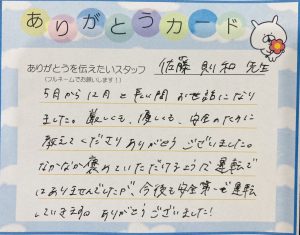 ありがとうカード
ありがとうを伝えたいスタッフ 佐藤 則和 先生
(フルネームでお願いします！)
5月から12月と長い間 お世話になり
ました。厳しくも、優しくも、安全のために
教えてくださりありがとうございました。
なかなか褒めていただけるような運転で
はありませんでしたが、今後も安全第一で運転
していきます。ありがとうございました!